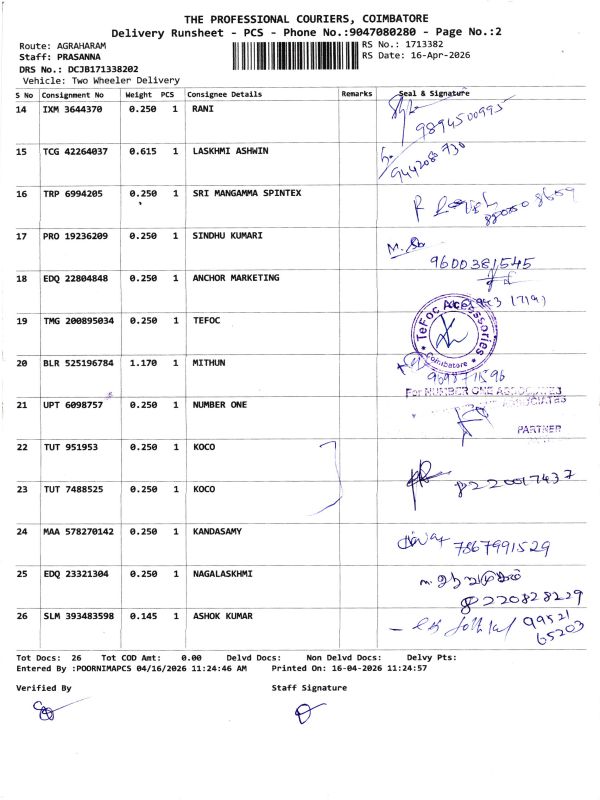 THE PROFESSIONAL COURIERS, COIMBATORE
Delivery Runsheet - PCS - Phone No.:9047080280 - Page No.:2
Route: AGRAHARAM
RS No.: 1713382
Staff: PRASANNA
RS Date: 16-Apr-2026
DRS No.: DCJB171338202
Vehicle: Two Wheeler Delivery
S No Consignment No Weight PCS Consignee Details Remarks Seal & Signature
14 IXM 3644370 0.250 1 RANI
9894500995
15 TCG 42264037 0.615 1 LASKHMI ASHWIN
9442080730
16 TRP 6994205 0.250 1 SRI MANGAMMA SPINTEX
17 PRO 19236209 0.250 1 SINDHU KUMARI
9600381545
18 EDQ 22804848 0.250 1 ANCHOR MARKETING
19 TMG 200895034 0.250 1 TEFOC
TeFoc Accessories
Coimbatore
20 BLR 525196784 1.170 1 MITHUN
21 UPT 6098757 0.250 1 NUMBER ONE
For NUMBER ONE ASSOCIATES
PARTNER
22 TUT 951953 0.250 1 KOCO
23 TUT 7488525 0.250 1 KOCO
8220017437
24 MAA 578270142 0.250 1 KANDASAMY
7867991529
25 EDQ 23321304 0.250 1 NAGALASKHMI
8220828229
26 SLM 393483598 0.145 1 ASHOK KUMAR
99521
65203
Tot Docs: 26 Tot COD Amt: 0.00 Delvd Docs: Non Delvd Docs: Delvy Pts:
Entered By :POORNIMAPCS 04/16/2026 11:24:46 AM Printed On: 16-04-2026 11:24:57
Verified By Staff Signature